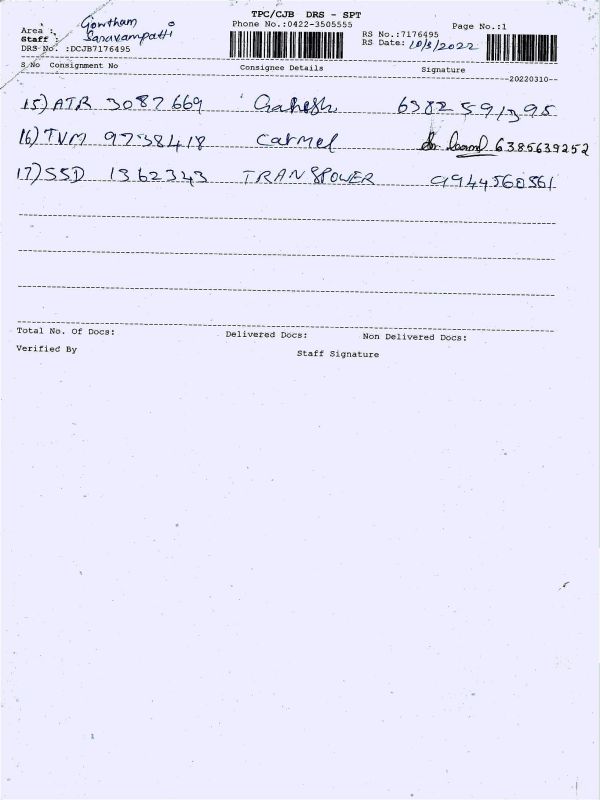 TPC/CJB DRS - SPT
Phone No.:0422-3505555
Page No.:1
Area : Gowtham
Staff : Saravampatti
DRS No. :DCJB7176495
RS No.:7176495
RS Date: 10/3/2022
S.No Consignment No Consignee Details Signature
--20220310--
15) ATR 3087669 6382591395
16) TVM 9738418 Carmel 6385639252
17) SSD 1362343 TRANSPOWER 9944560561
Total No. Of Docs: Delivered Docs: Non Delivered Docs:
Verified By Staff Signature